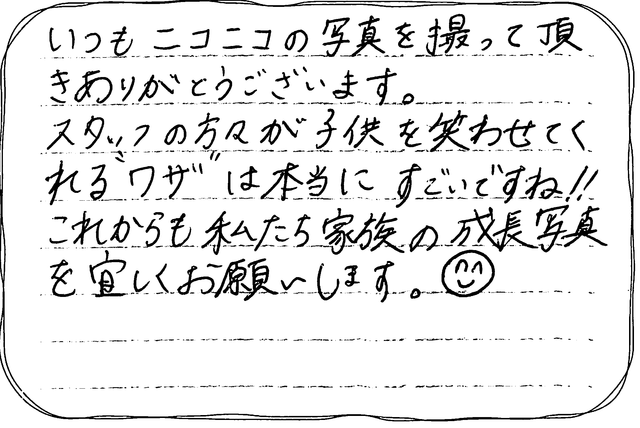 いつもニコニコの写真を撮って頂
きありがとうございます。
スタッフの方々が子供を笑わせてく
れる〝ワザ〟は本当にすごいですね!!
これからも私たち家族の成長写真
を宜しくお願いします。